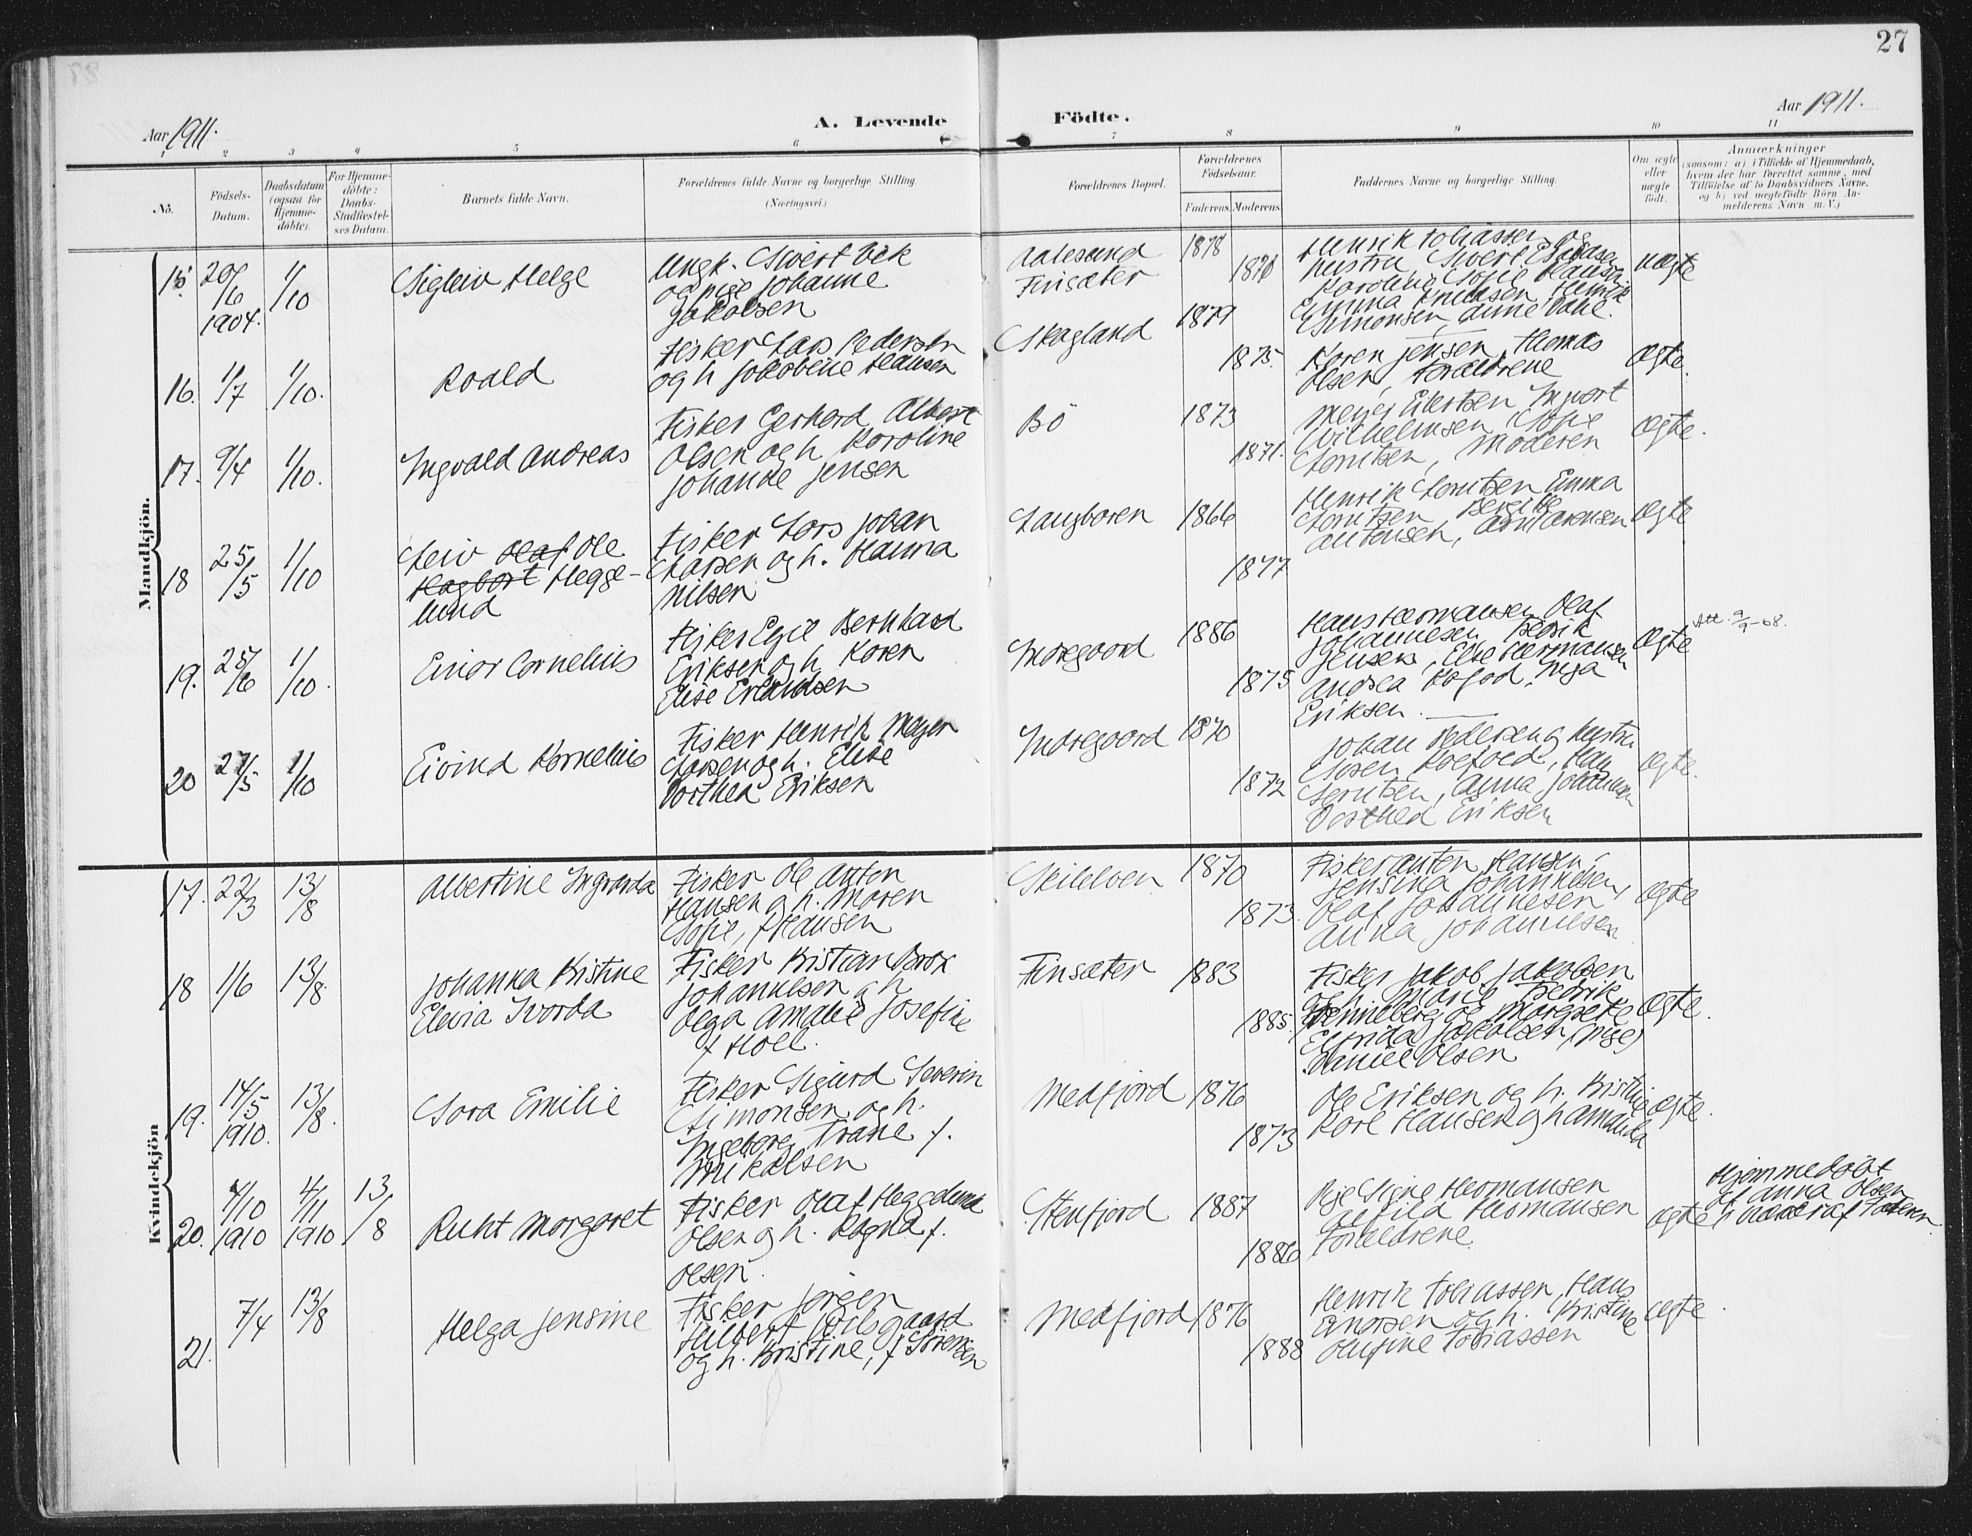 27
Aar 1911.
A. Levende
Födte.
Aar 1911.
1 2 3 4 5 6 7 8 9 10 11
No.
Födsels-
Datum.
Daabsdatum
(ogsaa for
Hjemme-
döbte).
For Hjemme-
döbte:
Daabs-
Stadfæstel-
ses Datum.
Barnets fulde Navn.
Forældrenes fulde Navne og borgerlige Stilling.
(Næringsvei.)
Forældrenes Bopæl.
Forældrenes
Födselsaar.
Faderens. Moderens.
Faddernes Navne og borgerlige Stilling.
Om ægte
eller
uægte
födt.
Anmærkninger
(saasom: a) i Tilfælde af Hjemmedaab,
hvem der har forrettet samme, med
Tilföielse af to Daabsvidners Navne,
og b) ved uægtefödte Börn An-
melderens Navn m. V.)
Mandkjön.
15. 20/6 1904. 1/10 Sigleiv Helge
Ungk. Sivert Vek
og pige Johanne
Jakobsen
Aalesund
Finsæter
1878
Henrik Tobiassen og
hustru Sivert
Karoline Sofie Hansen
Emma Eriksen Henrik
Simonsen, Anne
uægte
16. 1/7 1/10. Roald
Fisker Lars Pedersen
og h Jakobine Hansen
Skagland
1879
1875.
Karen Jensen, Thomas
Olsen, Forældrene
Ægte.
17. 9/4 1/10. Ingvald Andreas
Fisker Gerhard Albert
Olsen og h Karoline
Johande Jensen
Bö
1873
1871.
Meyer Eilertsen Ingvart
Vilhelmsen Sofie
Lorntsen, Moderen
Ægte.
18 25/5 1/10 Leiv Olaf Ole
Hagbart Hegge-
lund
Fisker Lars Johan
Larsen og h. Hanna
Nilsen
Langboren
1866
1877
Henrik Lorntsen Emma
Lorntsen
Antonsen,
Ægte
19. 25/6 1/10. Einar Cornelius
Fisker Egil Bernhard
Eriksen og h Karen
Elise Erlandsen
Indregaard
1886
1875
Hans Hermansen Olaf
Johannesen Fedrik
Jensen, Else Hermansen
Andrea Kofod, Inga
Eriksen.
Ægte
Att. 9/9-68.
20 27/5 1/10 Eivind Kornelius
Fisker Henrik Meyer
Larsen og h. Elise
Dorthea Eriksen
Indregaard
1870
1872
Johan Pedersen og hustru
Koefoed,
Lorntsen, Anna Johannesen
Dorthea Eriksen
Ægte.
Kvindekjön
17. 22/3 13/8 Albertine Ingvarda
Fisker Ole Anton
Hansen og h. Maren
Sofie, f Hansen
Skilelven
1870
1873.
Fisker Anton Hansen,
Jensina Johannesen,
Olaf Johannesen
Anna Johannesen
Ægte
18 1/6 13/8. Johanna Kristine
Elevia Ivorda
Fisker Kristian Brox
Johannesen og h
Olga Amalie Josefine
f Moll.
Finsæter
1883
1885.
Fisker Jakob Jakobsen
og h. Marie Fedrik
Henneberg og Margrete
Elfrida Jakobsen (pige)
Daniel Olsen
Ægte.
19. 14/5 1910. 13/8. Sara Emilie
Fisker Sigurd Severin
Simonsen og h.
Ingeborg Trane f.
Mikalsen
Medfjord
1876
1873
Ole Eriksen og h. Kristine
Karl Hansen og h Amanda
Ægte.
20. 4/10 1910 4/11 1910 13/8 Ruht Margaret
Fisker Olaf Heggelund
Olsen og h. Ragna f.
Olsen.
Stenfjord
1887
1886
Pige Signe Hermansen
Alfild Hermansen
Forældrene
Ægte
Hjemmedöbt
af Anna Olsen
21. 7/4 13/8 Helga Jensine
Fisker Jörgen
Hilbert
og h. Kristine, f Sörensen
Medfjord
1876
1888
Henrik Tobiassen, Hans
Enoksen og h. Kristine
Olufine Tobiassen
Ægte.